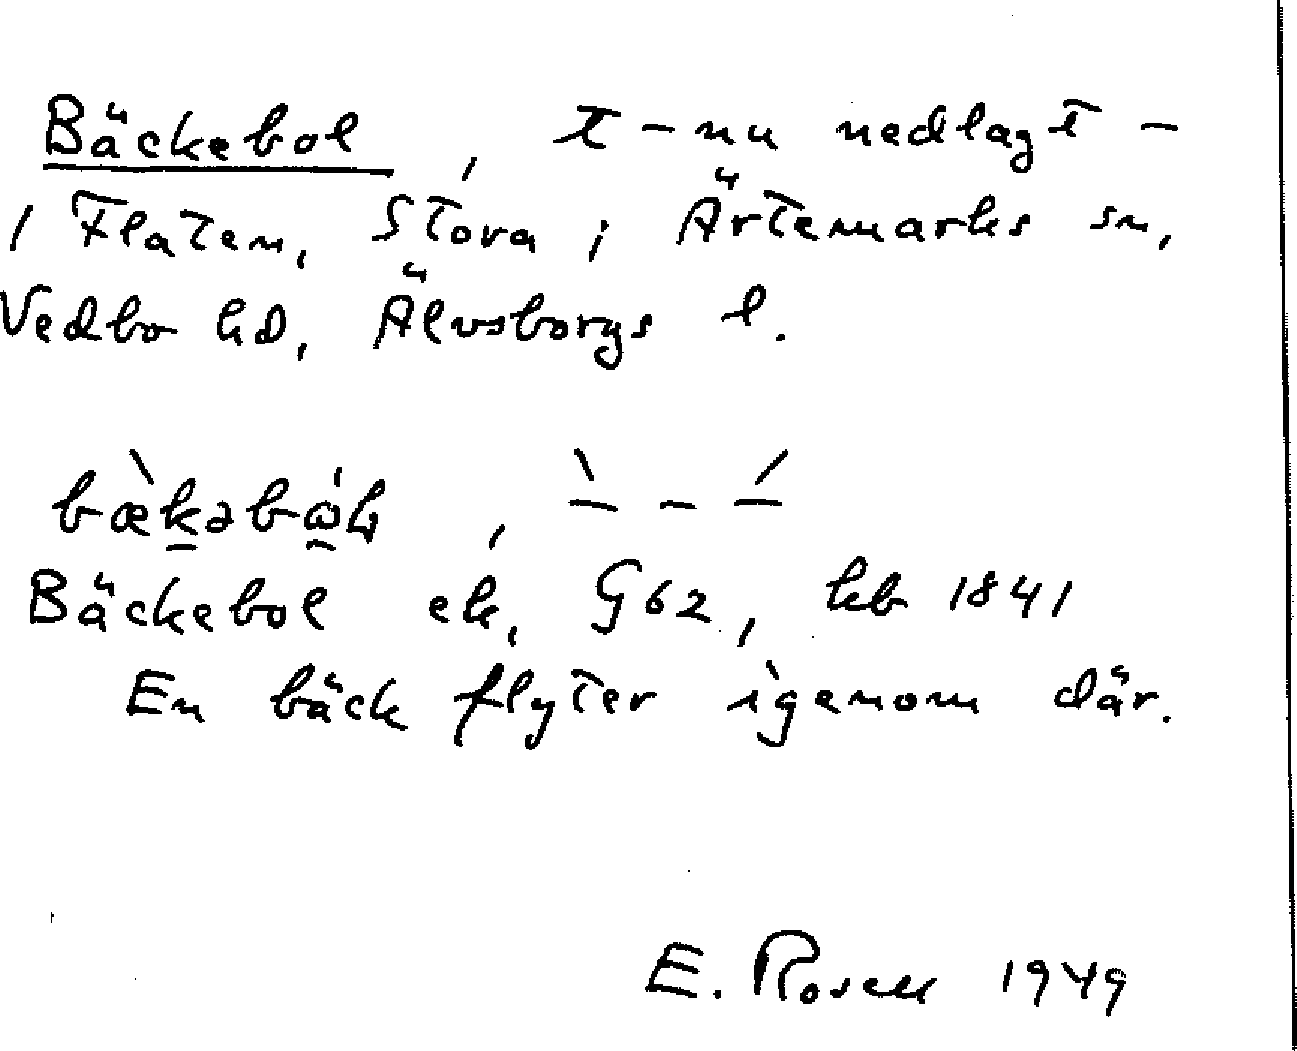 Bäckebol, t – nu nedlagt –
i Flaten, Stora i Ärtemarks sn,
Vedbo hd, Älvsborgs l.
Bäckebol ek, G62, hb 1841
En bäck flyter igenom där.
E. Rosell 1949